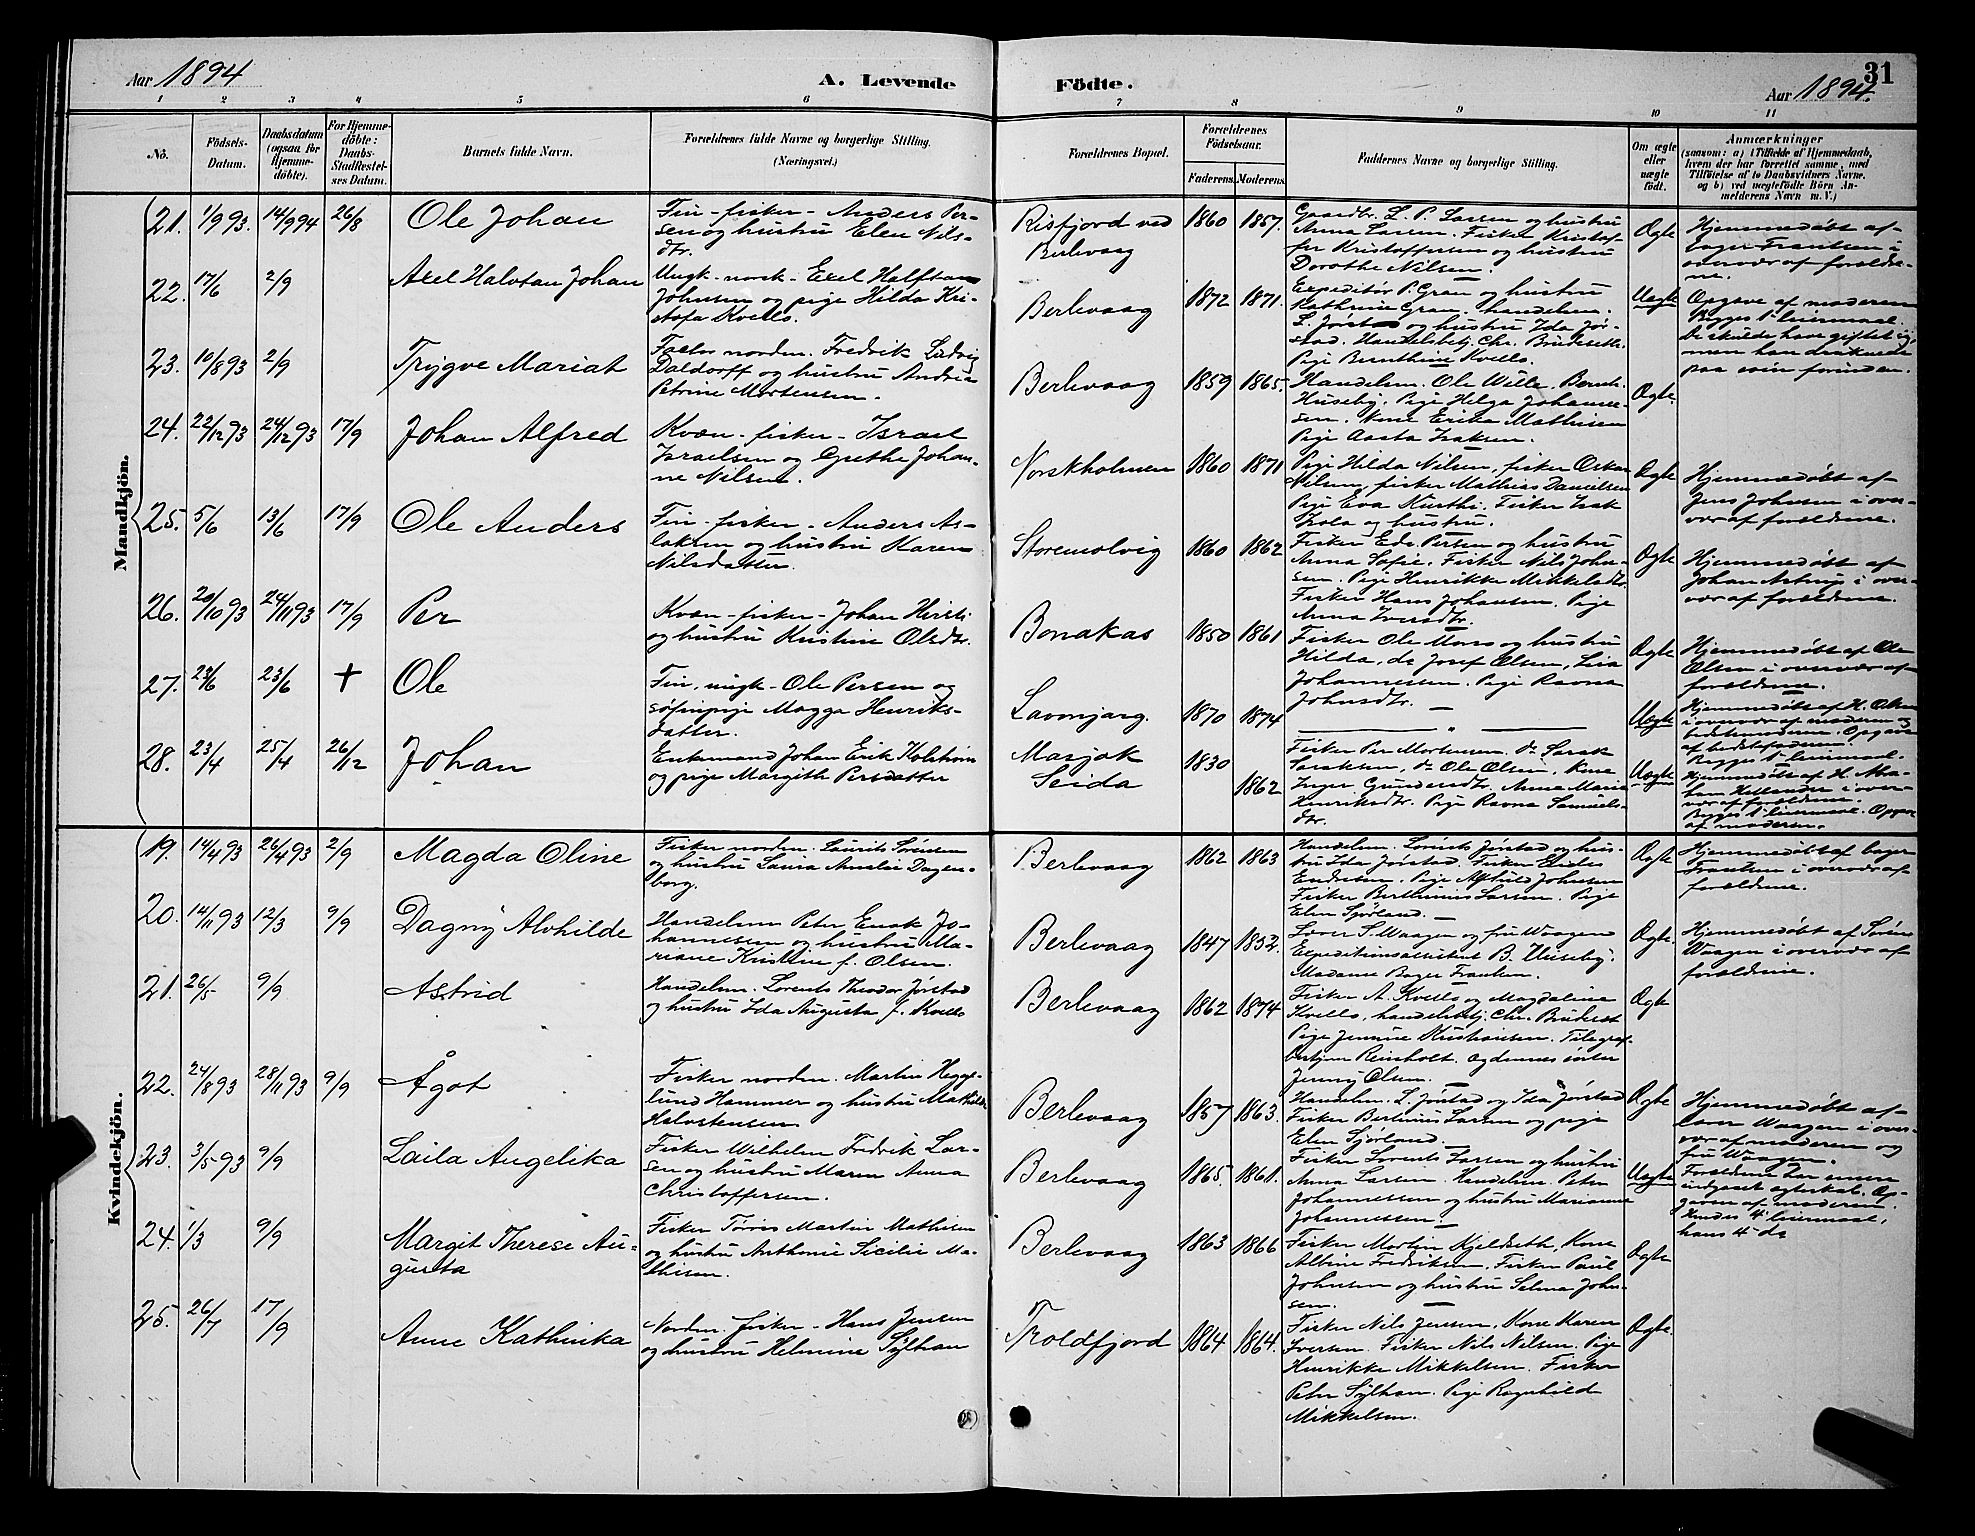 Aar 1894
A. Levende
Födte.
31
Aar 1894.
1 2 3 4 5 6 7 8 9 10 11
No.
Födsels-
Datum.
Daabsdatum
(ogsaa for
Hjemme-
döbte).
For Hjemme-
döbte:
Daabs-
Stadfæstel-
ses Datum.
Barnets fulde Navn.
Forældrenes fulde Navne og borgerlige Stilling.
(Næringsvei.)
Forældrenes Bopæl.
Forældrenes
Födselsaar.
Faderens. Moderens.
Faddernes Navne og borgerlige Stilling.
Om ægte
eller
uægte
födt.
Anmærkninger
(saasom: a) i Tilfælde af Hjemmedaab,
hvem der har forrettet samme, med
Tilföielse af to Daabsvidners Navne,
og b) ved uægtefödte Börn An-
melderens Navn m. V.)
Mandkjön.
21. 1/9 93. 14/9 94 26/8 Ole Johan
Fin - fisker - Anders Per-
sen og hustru Elen Nils-
dtr.
Risfjord ved
Berlevaag
1860 1857.
Gaardbr. L. P. Larsen og hustru
Anna Larsen. Fisker Kristof-
fer Kristoffersen og hustru
Dorothe Nilsen.
Ægte
Hjemmedøbt af
bager Frantsen i
overvær af foreldre-
ne.
22. 17/6 2/9 Axel Halvtan Johan
Ungk - norsk - Exel Halftan
Johnsen og pige Hilda Kri-
stofa Kvello.
Berlevaag
1872 1871.
Expeditør P. Gran og hustru
Kathrine Gran, handelsm.
L. Jørstad og hustru Ida Jør-
stad. Handelsbetj. Chr. Brudeseth.
Pige Bernthine Kvello.
Uægte
Opgave af moderen
Begges 1ste leiermaal.
De skulde have giftet sig,
men han druknede
paa veien forinden.
23. 10/8 93 2/9 Trygve Mariat
Factor norden. Fredrik Ludvig
Daldorff og hustru Andrea
Petrine Mortensen.
Berlevaag
1859 1865.
Handelsm. Ole Wille. Bernh.
Huseby. Pige Helga Johanne-
sen. Kone Erika Mathisen
Pige Aasta Isaksen.
Ægte.
24. 22/12 93 24/12 93 17/9 Johan Alfred
Kvæn - fisker - Israel
Israelsen og Grethe Johan-
ne Nilsen.
Norskholmen
1860 1871
Pige Hilda Nilsen, fisker Oskar
Nilsen, fisker Mathias Danielsen
Pige Eva Kurthi. Fisker Isak
Isola og hustru.
Ægte
Hjemmedøbt af
Jens Johnsen i over-
vær af foreldrene.
25. 5/6 13/6 17/9 Ole Anders
Fin - fisker - Anders As-
laksen og hustru Karen
Nilsdatter.
Storemolvig
1860 1862
Fisker Edv. Persen og hustru
Anna Sofie. Fisker Nils John-
sen. Pige Henrikke Mikkelsdtr.
Fisker Hans Johansen. Pige
Anna Iversdtr.
Ægte
Hjemmedøbt af
Johan Astrup i over-
vær af foreldrene.
26. 20/10 93 24/11 93 17/9 Per
Kvæn - fisker - Johan Heirsti
og hustru Kristine Olsdtr.
Bonakas
1850 1861
Fisker Ole Mons og hustru
Hilda, do Josef Olsen, Lisa
Johannessen. Pige Ravna
Johnsdtr.
Ægte
Hjemmedøbt af Ole
Olsen i overvær af
foreldrene.
27. 23/6 23/6 + Ole
Fin. ungk - Ole Persen og
søfinpige Magga Henriks-
datter.
Lavonjarg.
1870 1874
Uægte
Hjemmedøbt af H. Olsen
i overvær af moderen og
bedstemoderen. Opgave
af bedstefaderen.
Begges 1ste leiermaal.
28. 23/4 25/4 26/12 Johan
Enkemand Johan Erik Holstrøm
og pige Margith Persdatter
Masjok
Seida
1830
1862
Fisker Per Mortensen. do Sarak
Saraksen, do Ole Olsen, Kone
Inger Gundersdtr. Anna Maria
Henriksdtr. Pige Ravna Samuels-
dtr.
Uægte
Hjemmedøbt af H. Ma-
i over-
vær af foreldrene.
Begges 1ste leiermaal. Opgave
af moderen.
Kvindekjön.
19. 14/4 93 26/4 93 2/9 Magda Oline
Fisker norden. Laurits Sørensen
og hustru Laura Amalie Dagen-
borg.
Berlevaag
1862 1863
Handelsm. Lorents Jørstad og hus-
tru Ida Jørstad. Fisker Endre
Endresen. Pige Astrid Johnsen
Fisker Berthinius Larsen. Pige
Elen Sjørland.
Ægte
Hjemmedøbt af bager
Frantsen i overvær af
foreldrene.
20. 14/11 93 12/3 9/9 Dagny Alvhilde
Handelsm. Peter Enok Jo-
hannessen og hustru Ma-
riane Kristine f. Olsen.
Berlevaag
1847 1852.
Lærer S. Waagen og fru Waagen
Expeditionsassistent B. Huseby.
Madame Bager Frantsen.
Ægte.
Hjemmedøbt af Søren
Waagen i overvær af
foreldrene.
21. 26/5 9/9 Astrid
Handelsm. Lorents Theodor Jørstad
og hustru Ida Augusta f. Kvello
Berlevaag
1862 1874
Fisker A. Kvello og Magdaline
Kvello, handelsbetj. Chr. Brudeset
Pige Jensine Kristiansen. Telegraf-
bestyrer Reinholt.
Jenny Olsen.
Ægte
22. 24/8 93 28/11 93 9/9 Ågot
Fisker norden. Martin Hegge-
lund Hammer og hustru Mathilde
Halvotensen
Berlevaag
1857 1863.
Handelsm. L. Jørstad og Ida Jørstad
Fisker Bertinius Larsen og pige
Elen Sjørland.
Ægte
Hjemmedøbt af
lærer Waagen i over-
vær af moderen og
fru Waagen.
23. 3/5 93 9/9 Laila Angelika
Fisker Wilhelm Fredrik Lar-
sen og hustru Maren Anna
Christoffersen.
Berlevaag
1865. 1861.
Fisker Lorents Larsen og hustru
Anna Larsen. Handelsm. Peter
Johannessen og hustru Marianne
Johannessen.
Uægte
Foreldrene har senere
indgaaet egteskab. Op-
gaven af moderen.
Hendes 4de leiermaal,
hans 4de do
24. 1/3 9/9 Margit Therese Au-
gusta
Fisker Tøres Martin Mathisen
og hustru Anthonie Sicilie Ma-
thisen.
Berlevaag
1863 1866
Fisker Martin Kjeldseth, Kone
Albine Fredriksen. Fisker Paul
Johnsen og hustru Selma John-
sen.
Ægte
25. 26/7 17/9 Anne Kathinka
Norden. fisker - Hans Jensen
og hustru Helmine Sylhan
Troldfjord
1864 1864.
Fisker Nils Jensen, Kone Karen
Iversen. Fisker Nils Nilsen. Pige
Henrikke Mikkelsen. Fisker
Peter Sylhan. Pige Ragnhild
Mikkelsen.
Ægte.